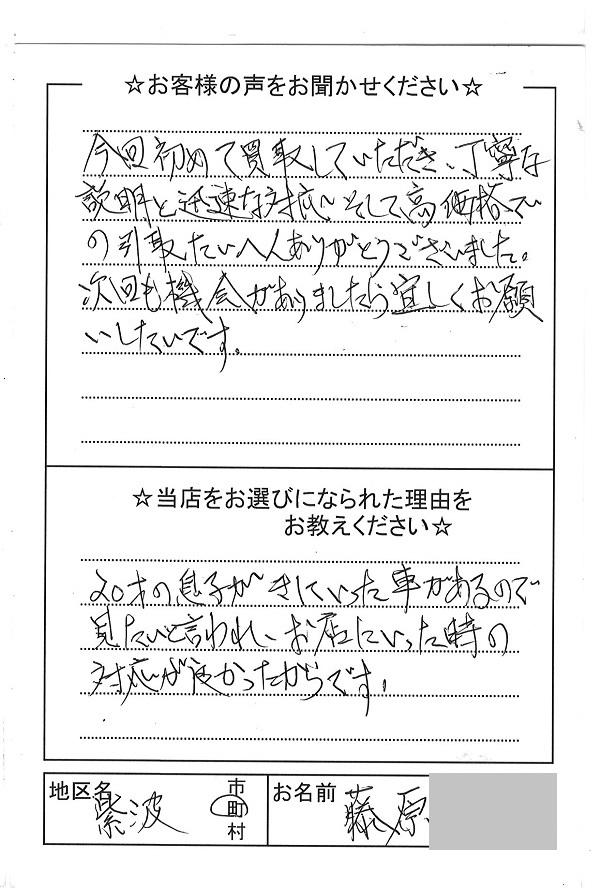 ☆お客様の声をお聞かせください☆
今回初めて買取していただき、丁寧な
説明と迅速な対応、そして高価格で
の引取たいへんありがとうございました。
次回も機会がありましたら宜しくお願
いしたいです。
☆当店をお選びになられた理由を
お教えください☆
20才の息子がきにいった車があるので
見たいと言われ、お店にいった時の
対応が良かったからです。
地区名 紫波 市町村 お名前 藤原